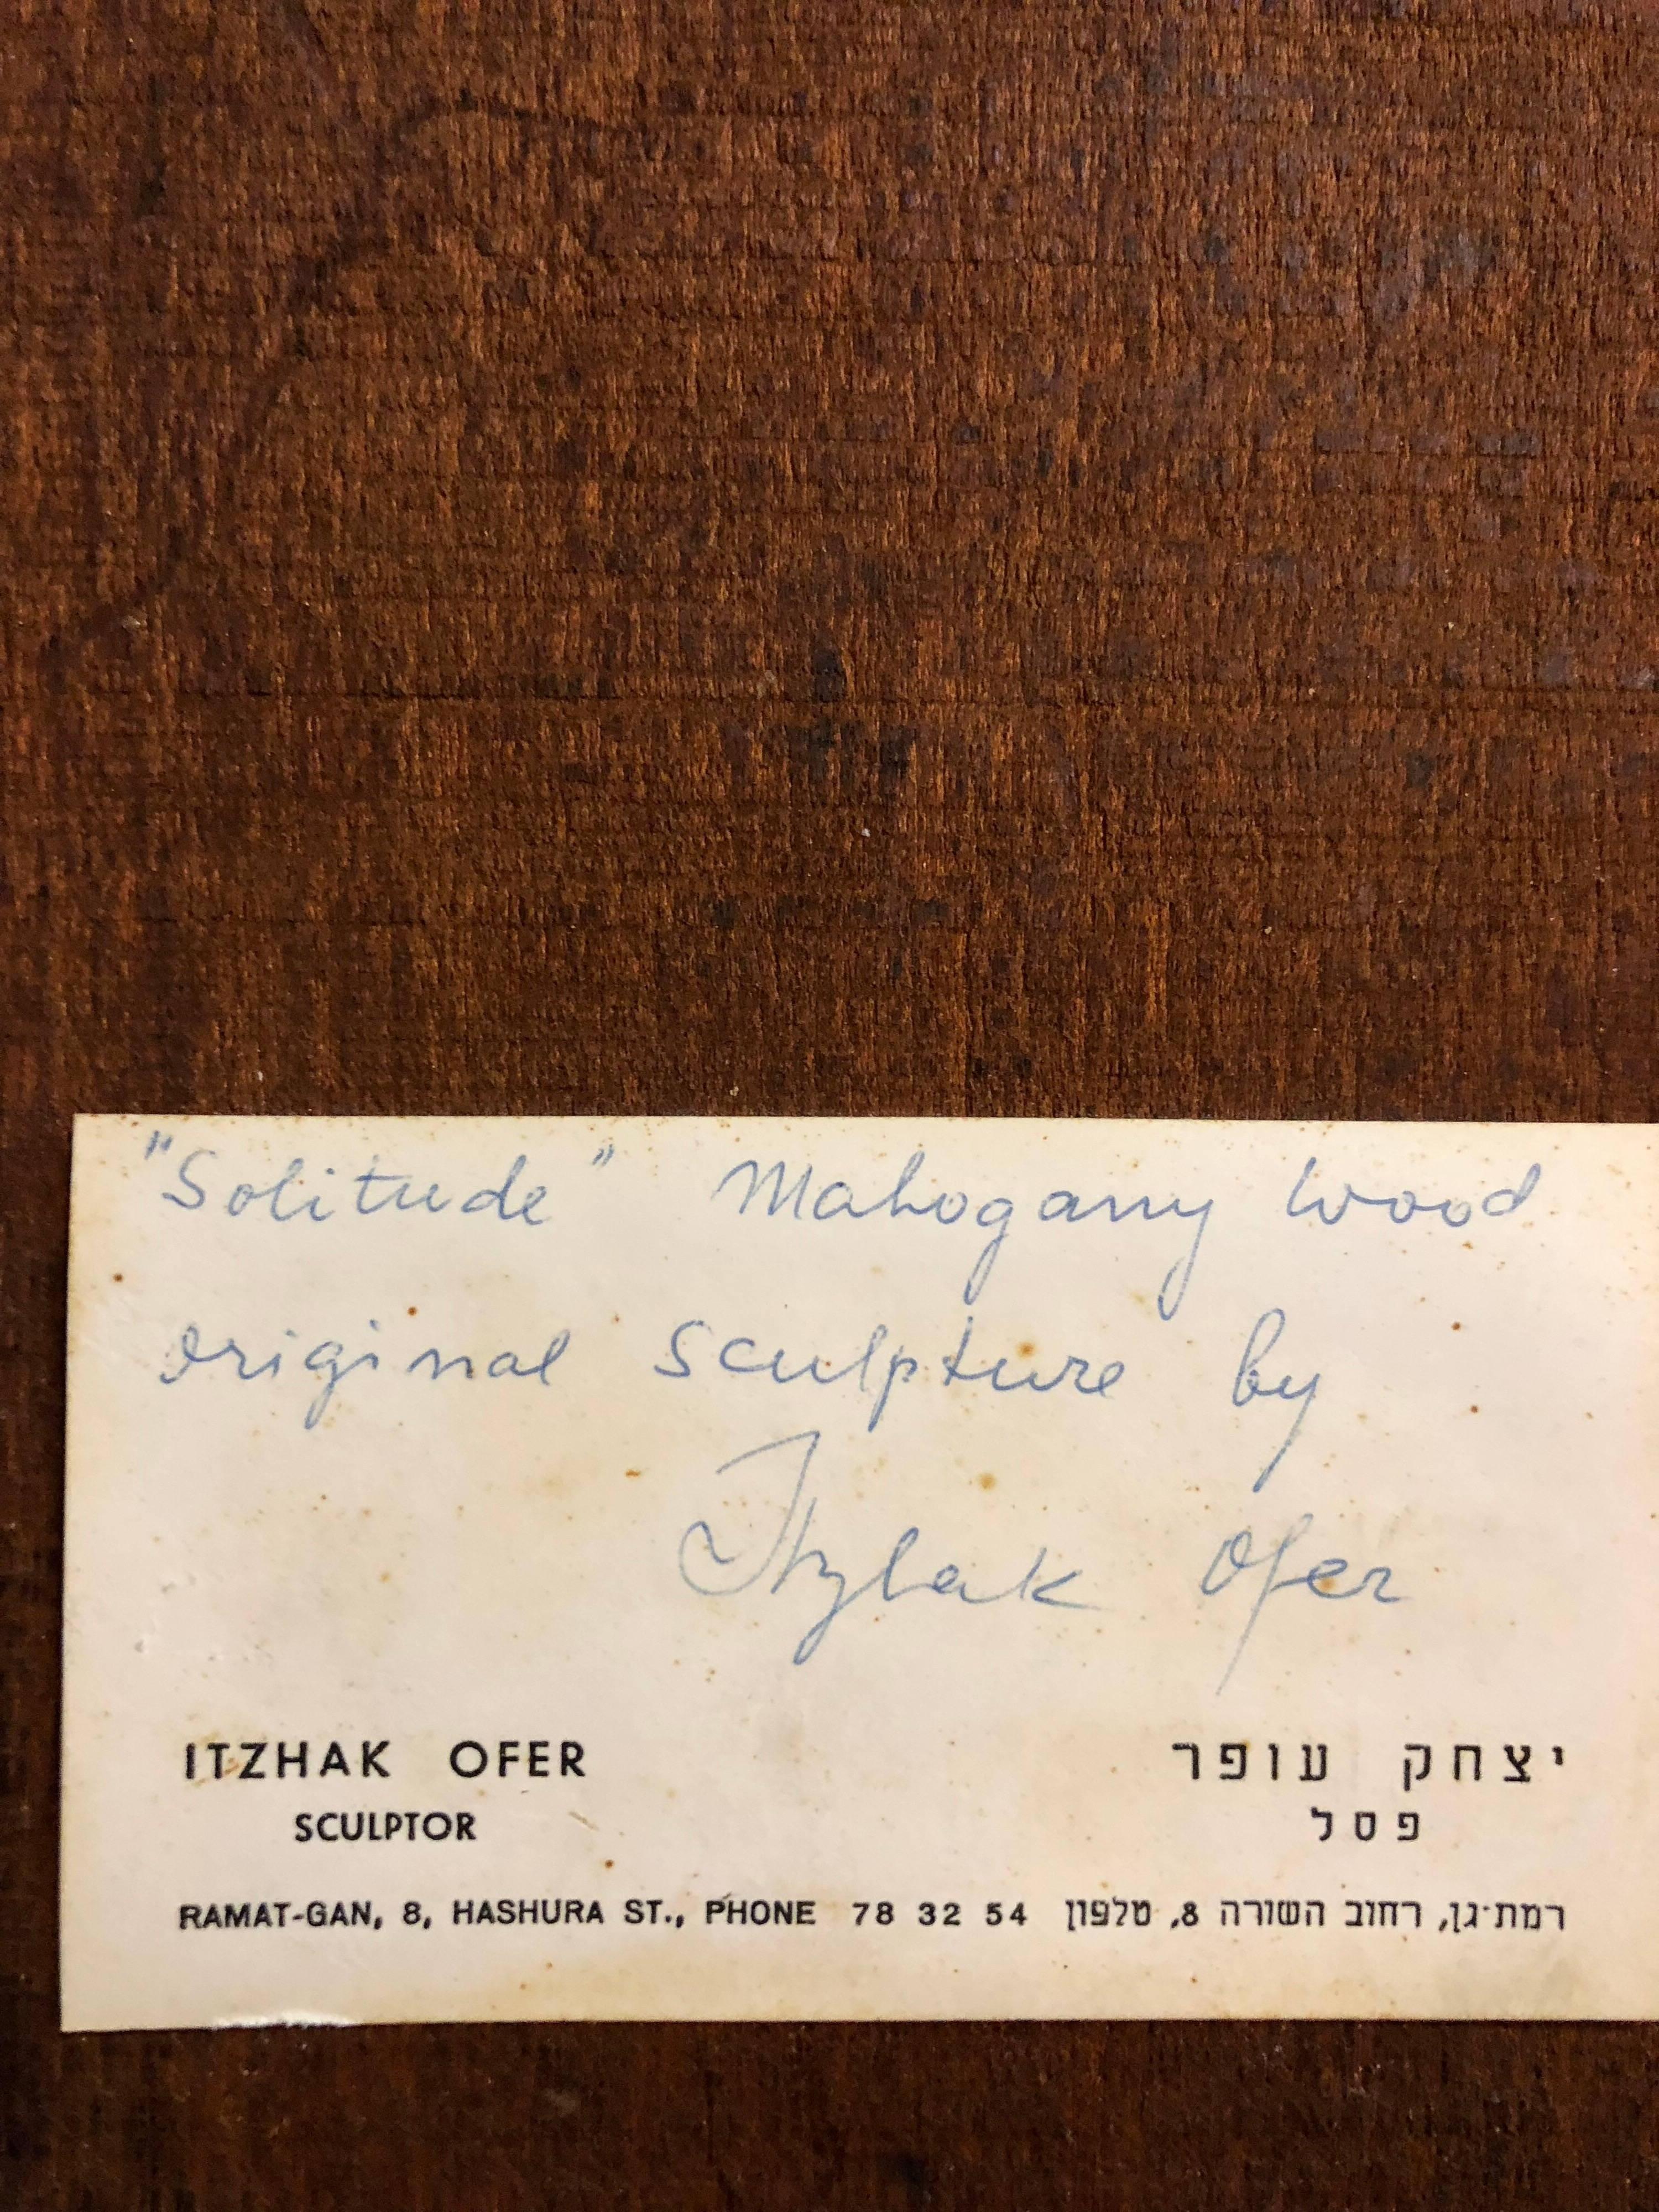 "Solitude" Mahogany wood
original sculpture by
Itzhak Ofer
ITZHAK OFER יצחק עופר
SCULPTOR פסל
RAMAT-GAN, 8, HASHURA ST., PHONE 78 32 54 רמת־גן, רחוב השורה 8, טלפון